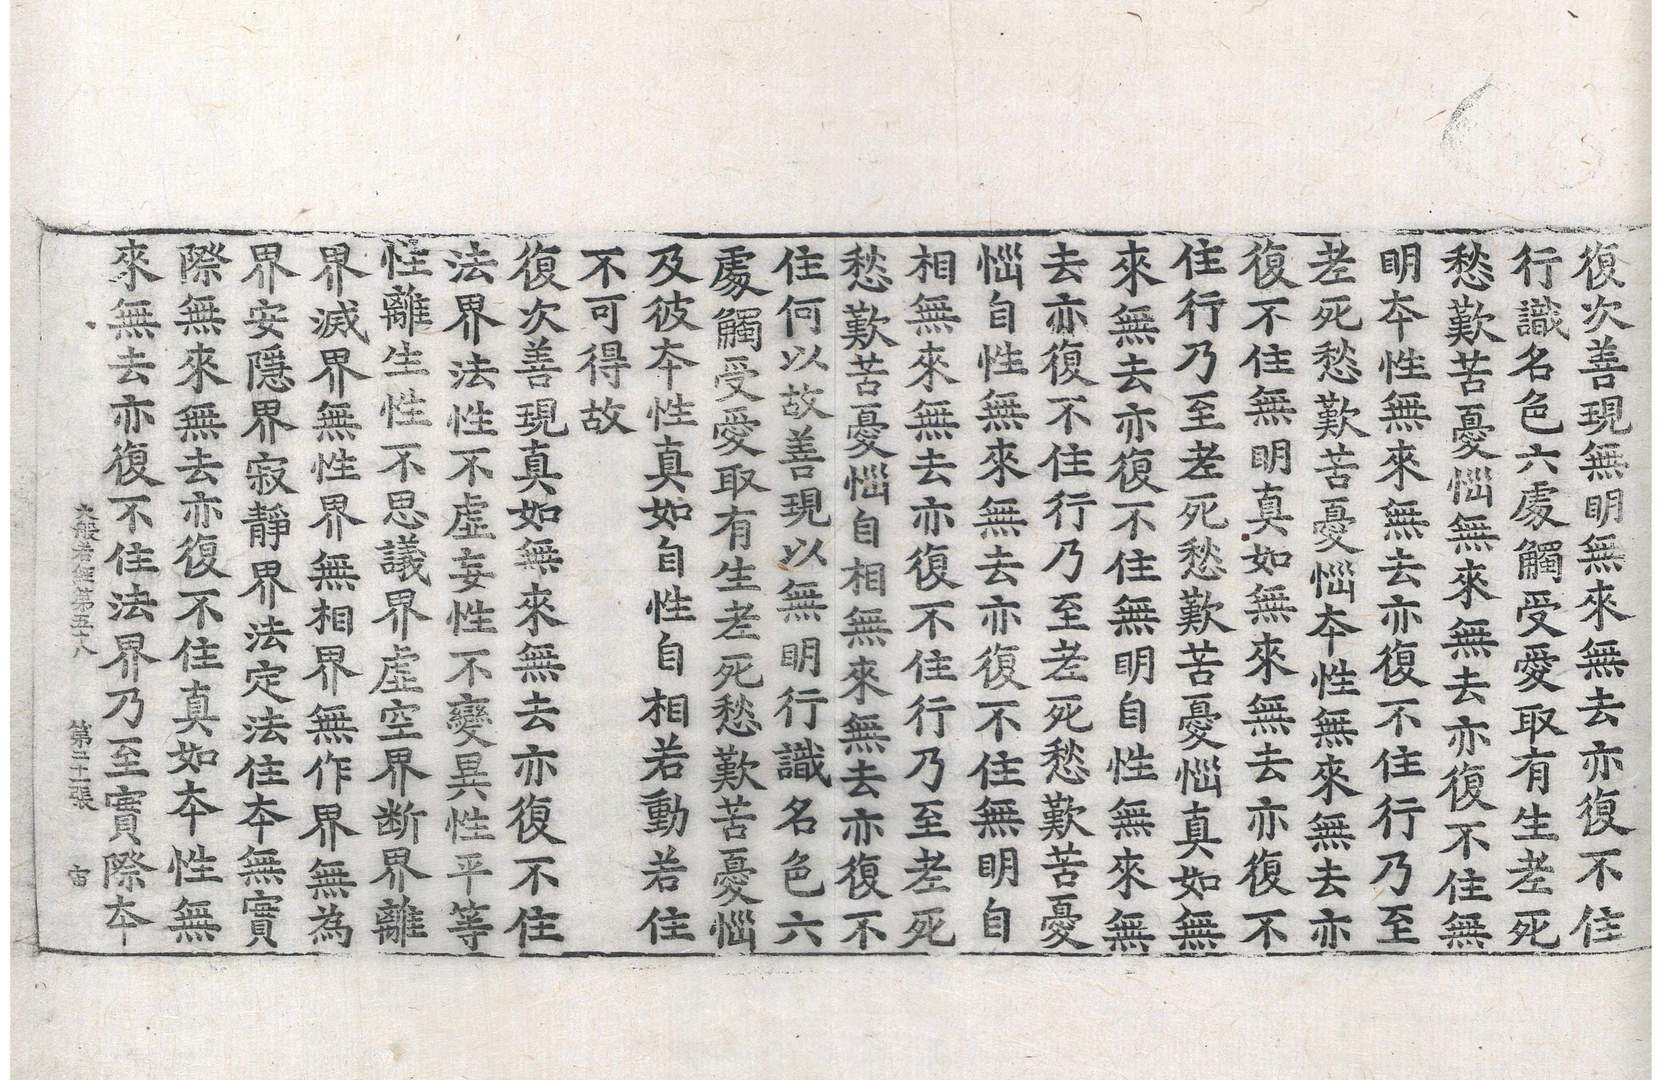 復次善現無明無來無去亦復不住
行識名色六處觸受愛取有生老死
愁歎苦憂惱無來無去亦復不住無
明本性無來無去亦復不住行乃至
老死愁歎苦憂惱本性無來無去亦
復不住無明真如無來無去亦復不
住行乃至老死愁歎苦憂惱真如無
來無去亦復不住無明自性無來無
去亦復不住行乃至老死愁歎苦憂
惱自性無來無去亦復不住無明自
相無來無去亦復不住行乃至老死
愁歎苦憂惱自相無來無去亦復不
住何以故善現以無明行識名色六
處觸受愛取有生老死愁歎苦憂惱
及彼本性真如自性自相若動若住
不可得故
復次善現真如無來無去亦復不住
法界法性不虛妄性不變異性平等
性離生性不思議界虛空界断界離
界滅界無性界無相界無作界無為
界安隱界寂靜界法定法住本無實
際無來無去亦復不住真如本性無
來無去亦復不住法界乃至實際本
大般若經第五十八 第二十張 宙